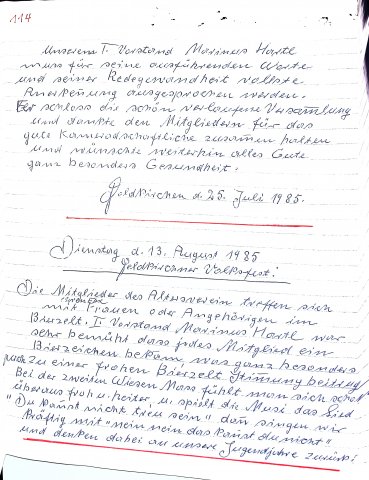 114
Unserem I. Vorstand Marinus Hartl
muss für seine ausführenden Worte
und seiner Redegewandheit vollste
Anerkenung ausgesprochen werden.
Er schloss die schön verlaufene Versamlung
und dankte den Mitgliedern für das
gute Kameradschaftliche zusamen halten
und wünschte weiterhin alles Gute
ganz besonders Gesundheit.
Feldkirchen d. 25. Juli 1985.
Dienstag d. 13. August 1985
Feldkirchner Volksfest!
Die Mitglieder des Altersverein treffen sich
mit Frauen oder Angehörigen im
Bierzelt. I. Vorstand Marinus Hartl war
sehr bemüht das jedes Mitglied ein
Bierzeichen bekam, was ganz besonders
zu einer frohen Bierzelt Stimung beitrug
Bei der zweiten Wiesen Mass fühlt man sich schon
überaus froh u. heiter, u. spielt die Musi das Lied
"Du kanst nicht treu sein" dan singen wir
kräftig mit "nein nein das kanst du nicht"
und denken dabei an unsere Jugendjahre zurück!